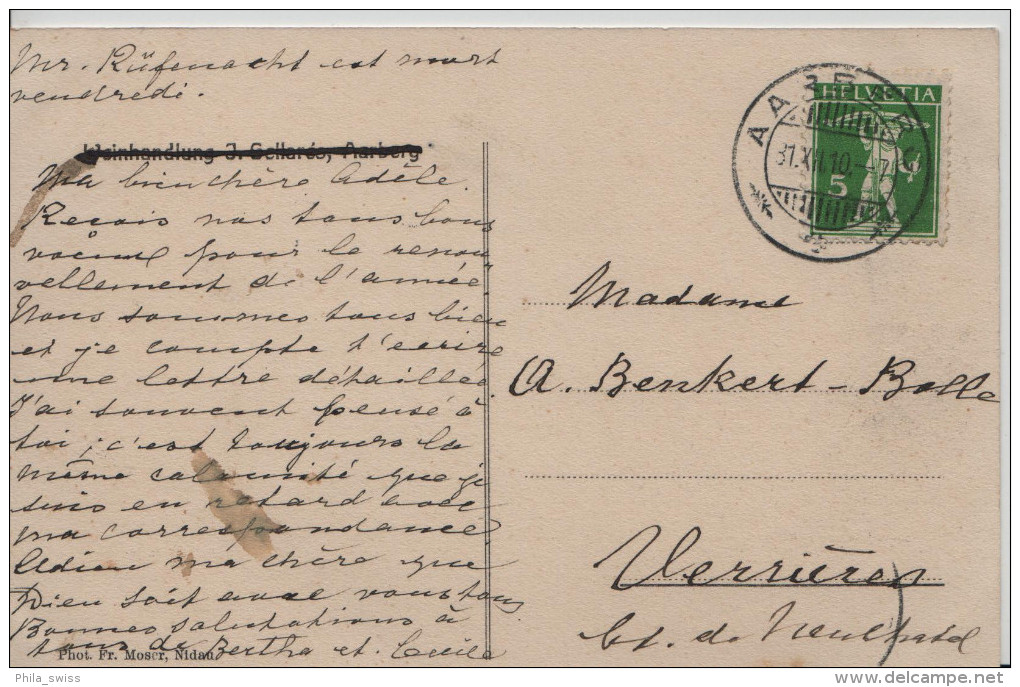 Mr. Rüfenacht est mort
vendredi.
Weinhandlung J. Sellarés, Aarberg
Ma bien chère Adèle.
Reçois nos tous bons
voeux pour le renou-
vellement de l'année.
Nous sommes tous bien
et je compte t'écrire
une lettre détaillée
J'ai souvent pensé à
toi ; c'est toujours la
même calamité que je
suis en retard avec
ma correspondance.
Adieu ma chère que
Dieu soit avec vous tous
Bonnes salutations à
tous de Bertha et Cécile
Phot. Fr. Moser, Nidau
HELVETIA
5
AARBERG
31.XII.10.–7
Madame
A. Benkert-Bolle
Verrières
Ct. de Neuchâtel
Phila_swiss
delcampe.net